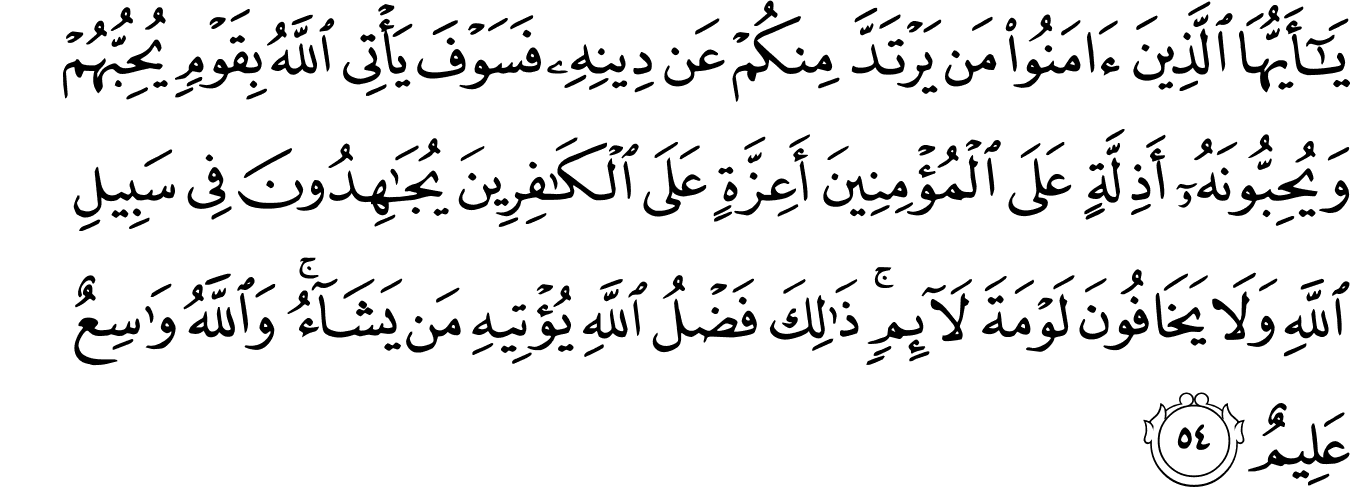 يَـٰٓأَيُّهَا ٱلَّذِينَ ءَامَنُوا۟ مَن يَرْتَدَّ مِنكُمْ عَن دِينِهِۦ فَسَوْفَ يَأْتِى ٱللَّهُ بِقَوْمٍ يُحِبُّهُمْ
وَيُحِبُّونَهُۥٓ أَذِلَّةٍ عَلَى ٱلْمُؤْمِنِينَ أَعِزَّةٍ عَلَى ٱلْكَـٰفِرِينَ يُجَـٰهِدُونَ فِى سَبِيلِ
ٱللَّهِ وَلَا يَخَافُونَ لَوْمَةَ لَآئِمٍ ۚ ذَٰلِكَ فَضْلُ ٱللَّهِ يُؤْتِيهِ مَن يَشَآءُ ۚ وَٱللَّهُ وَٰسِعٌ
عَلِيمٌ ٥٤